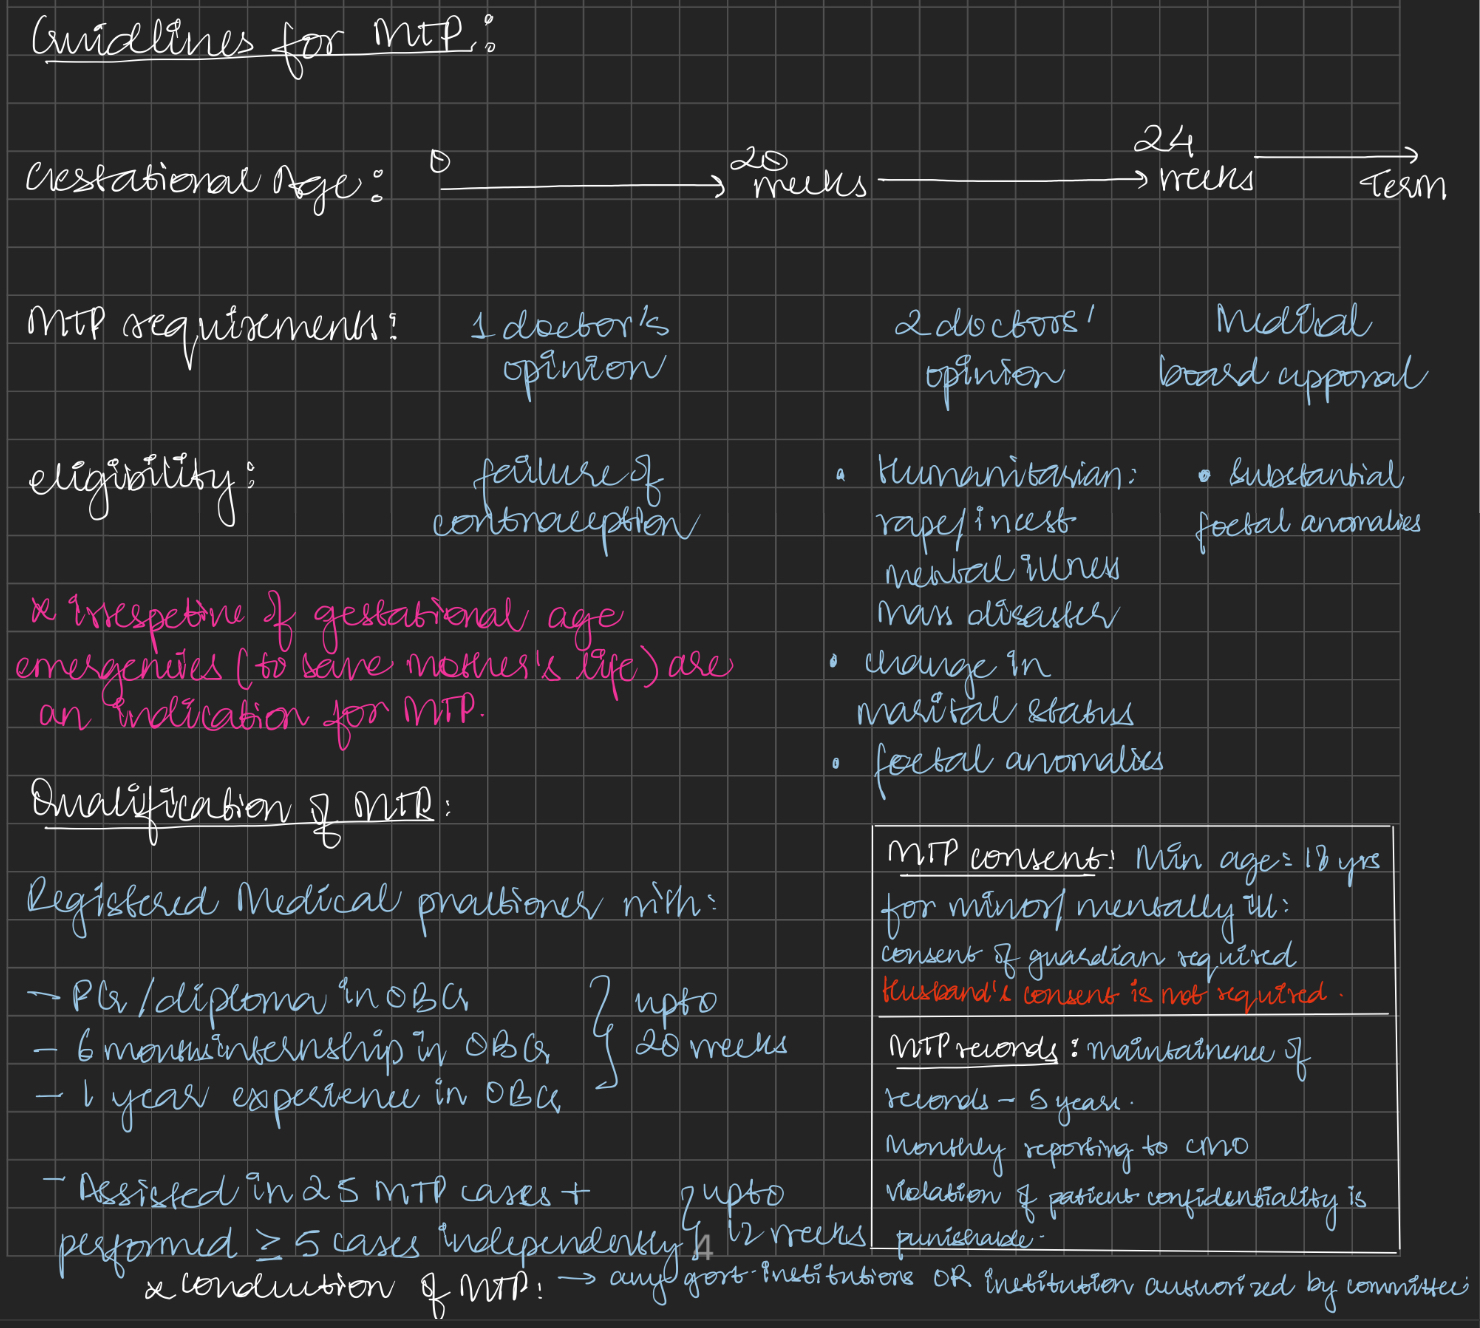 Guidlines for MTP:
Gestational Age: 0 20 weeks 24 weeks Term
MTP requirements: 1 doctor's opinion 2 doctors' opinion Medical board apporal
eligibility: failure of contraception
• Humanitarian:
rape/incest
mental illness
mass disaster
• change in
marital status
• foetal anomalies
• substantial
foetal anomalies
* irrespetive of gestational age
emergencies (to save mother's life) are
an indication for MTP.
Qualification of MTP:
Registered Medical practioner with:
- PG/diploma in OBG
- 6 months internship in OBG
- 1 year experience in OBG
upto
20 weeks
- Assisted in 25 MTP cases +
performed ≥ 5 cases independently
upto
12 weeks
4
MTP consent: Min age = 18 yrs
for minor/mentally ill:
consent of guardian required
Husband's consent is not required.
MTP records: maintainence of
records - 5 years.
Monthly reporting to CMO
violation of patient confidentiality is
punishable.
* conduction of MTP: → any govt. institutions OR institution authorized by committee